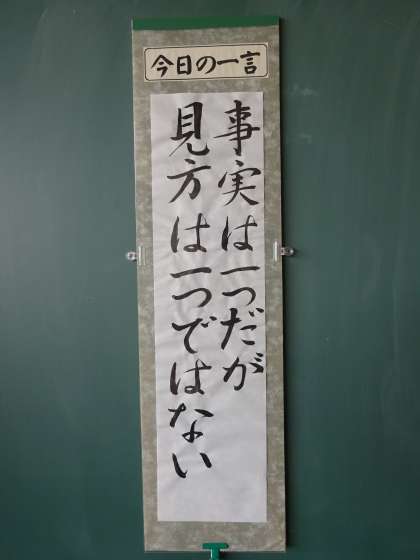 今日の一言
事実は一つだが
見方は一つではない